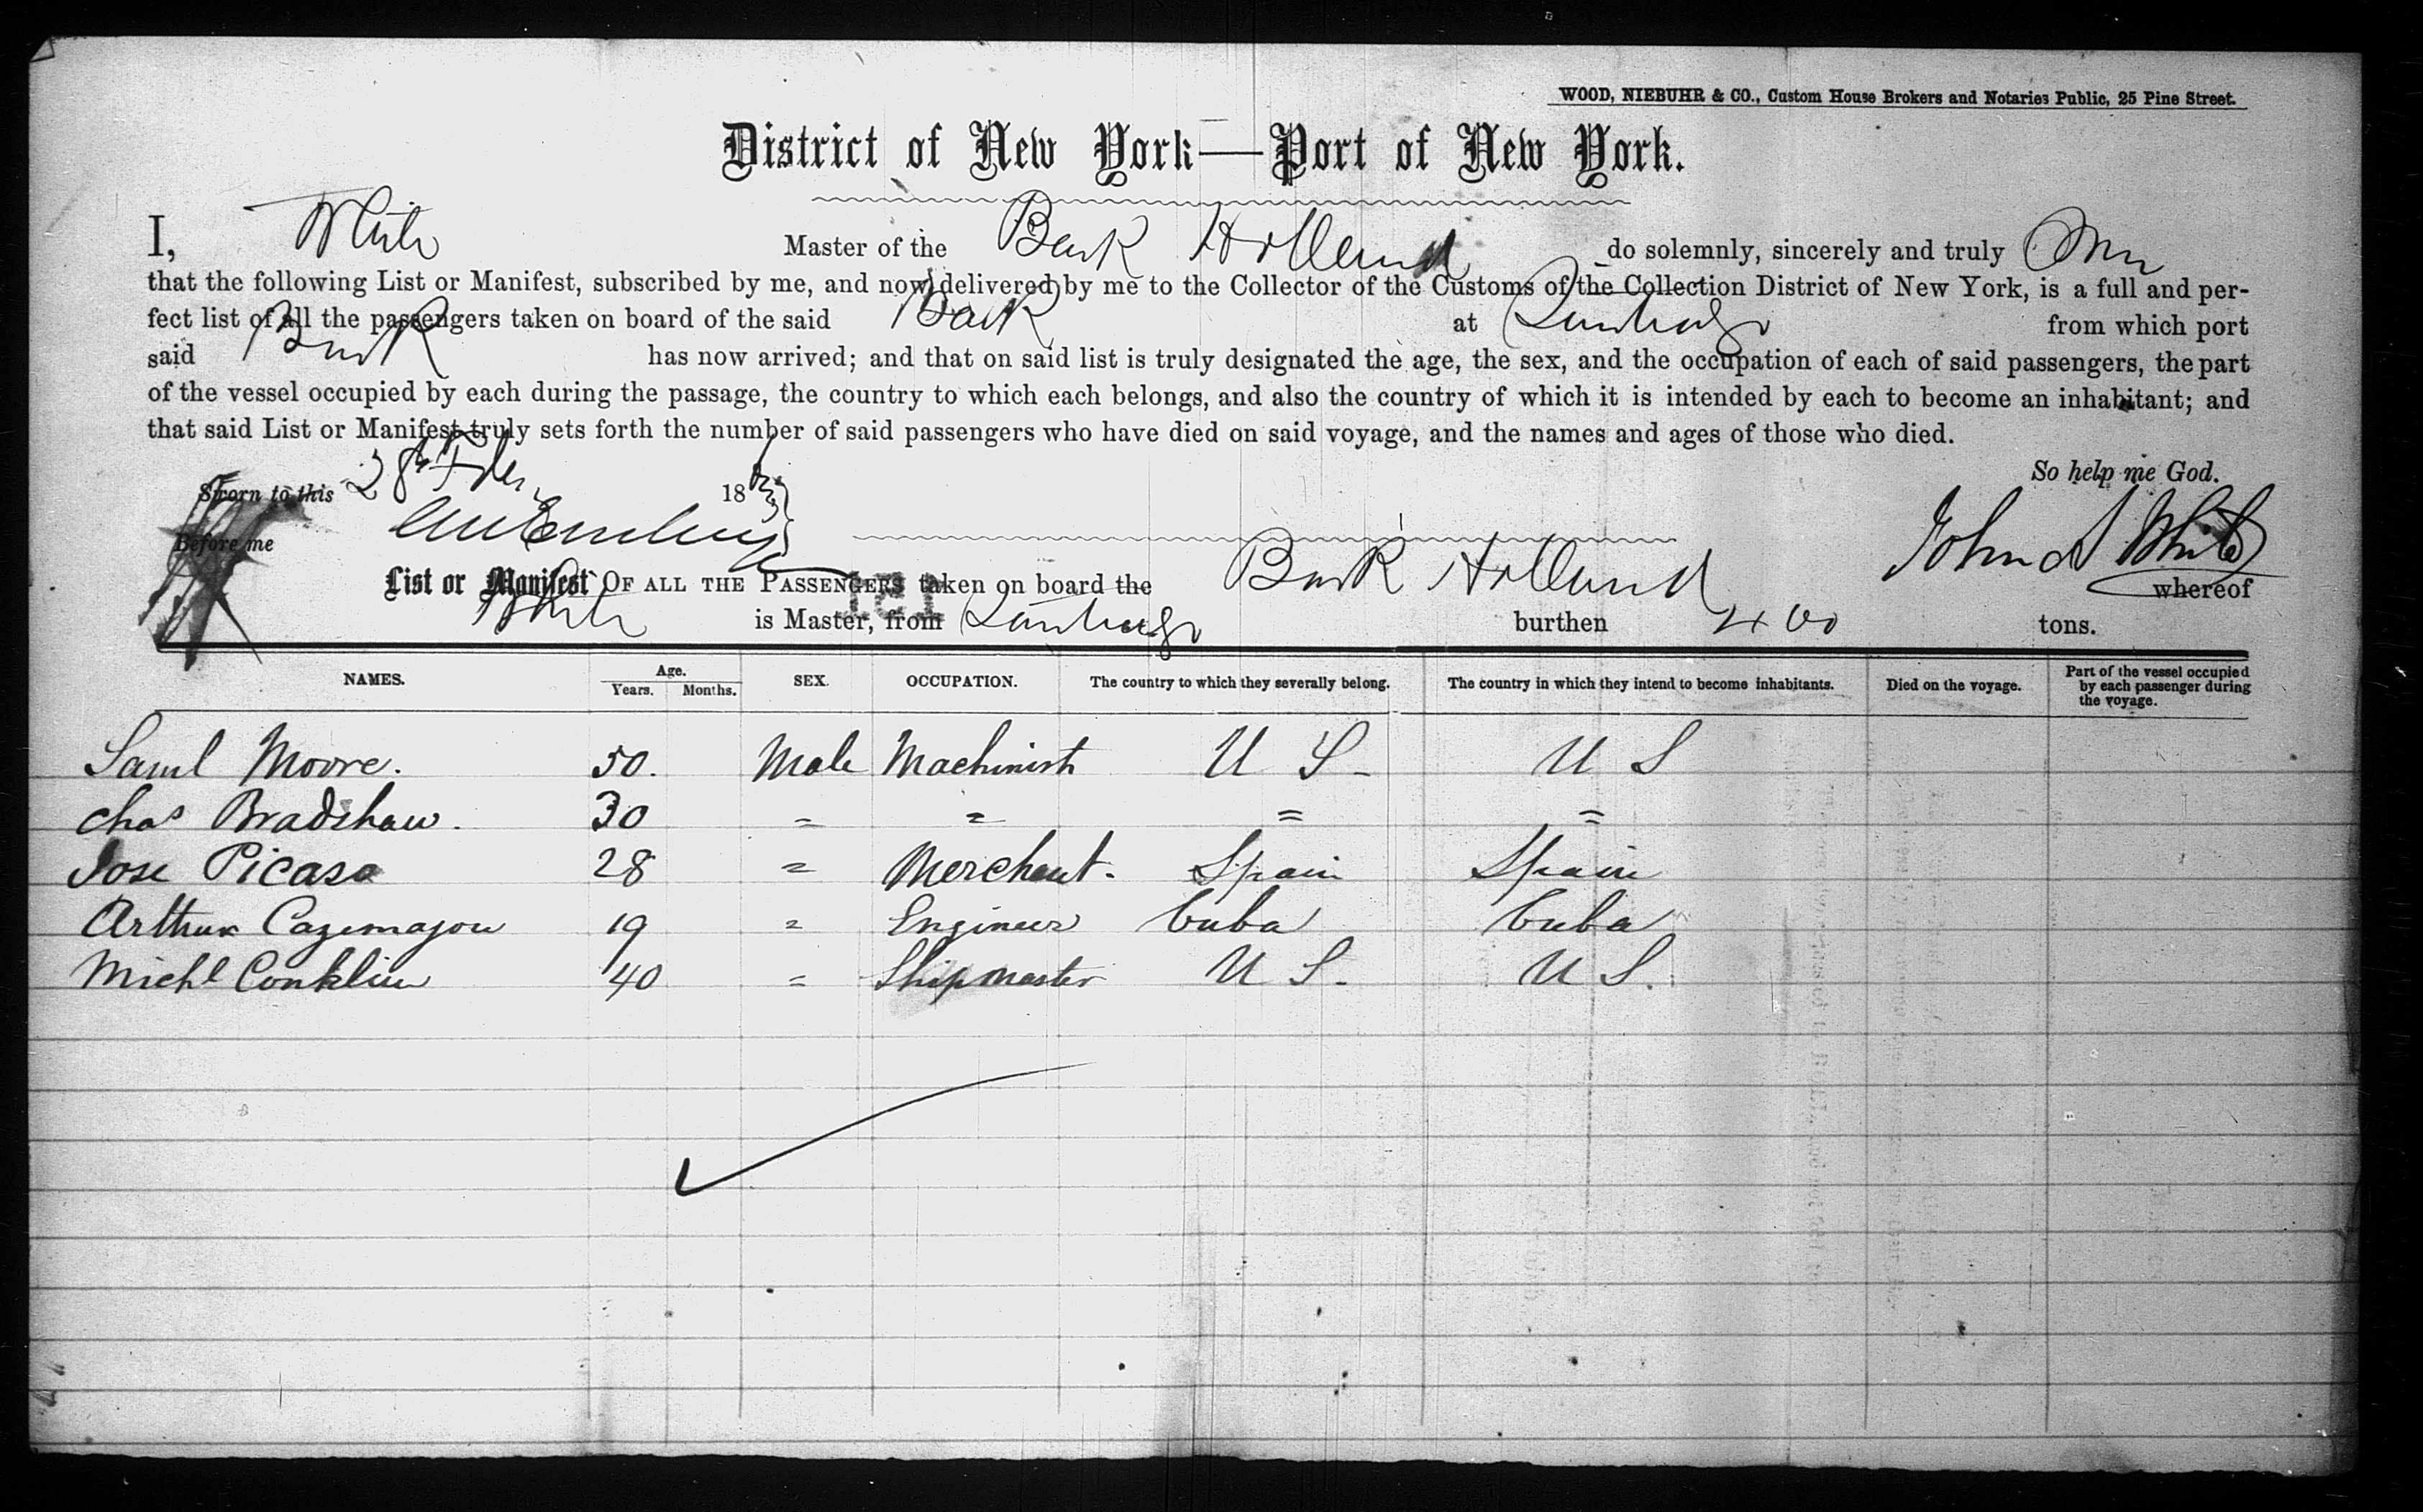 WOOD, NIEBUHR & CO., Custom House Brokers and Notaries Public, 25 Pine Street.
District of New York—Port of New York.
I, White Master of the Bark Holland do solemnly, sincerely and truly
that the following List or Manifest, subscribed by me, and now delivered by me to the Collector of the Customs of the Collection District of New York, is a full and per-
fect list of all the passengers taken on board of the said Bark at from which port
said Bark has now arrived; and that on said list is truly designated the age, the sex, and the occupation of each of said passengers, the part
of the vessel occupied by each during the passage, the country to which each belongs, and also the country of which it is intended by each to become an inhabitant; and
that said List or Manifest truly sets forth the number of said passengers who have died on said voyage, and the names and ages of those who died.
So help me God.
Sworn to this 28th 18
Before me
John S White
List or Manifest OF ALL THE PASSENGERS taken on board the Bark Holland whereof
White is Master, from burthen 400 tons.
151
NAMES. Age. Years. Months. SEX. OCCUPATION. The country to which they severally belong. The country in which they intend to become inhabitants. Died on the voyage. Part of the vessel occupied by each passenger during the voyage.
Saml Moore. 50. Male Machinist U S - U S
Chas Bradshaw. 30 = = = =
Jose Picaso 28 = Merchant. Spain Spain
Arthur Cazemajou 19 = Engineer Cuba Cuba
Michl Conklin 40 = Shipmaster U S. U S.